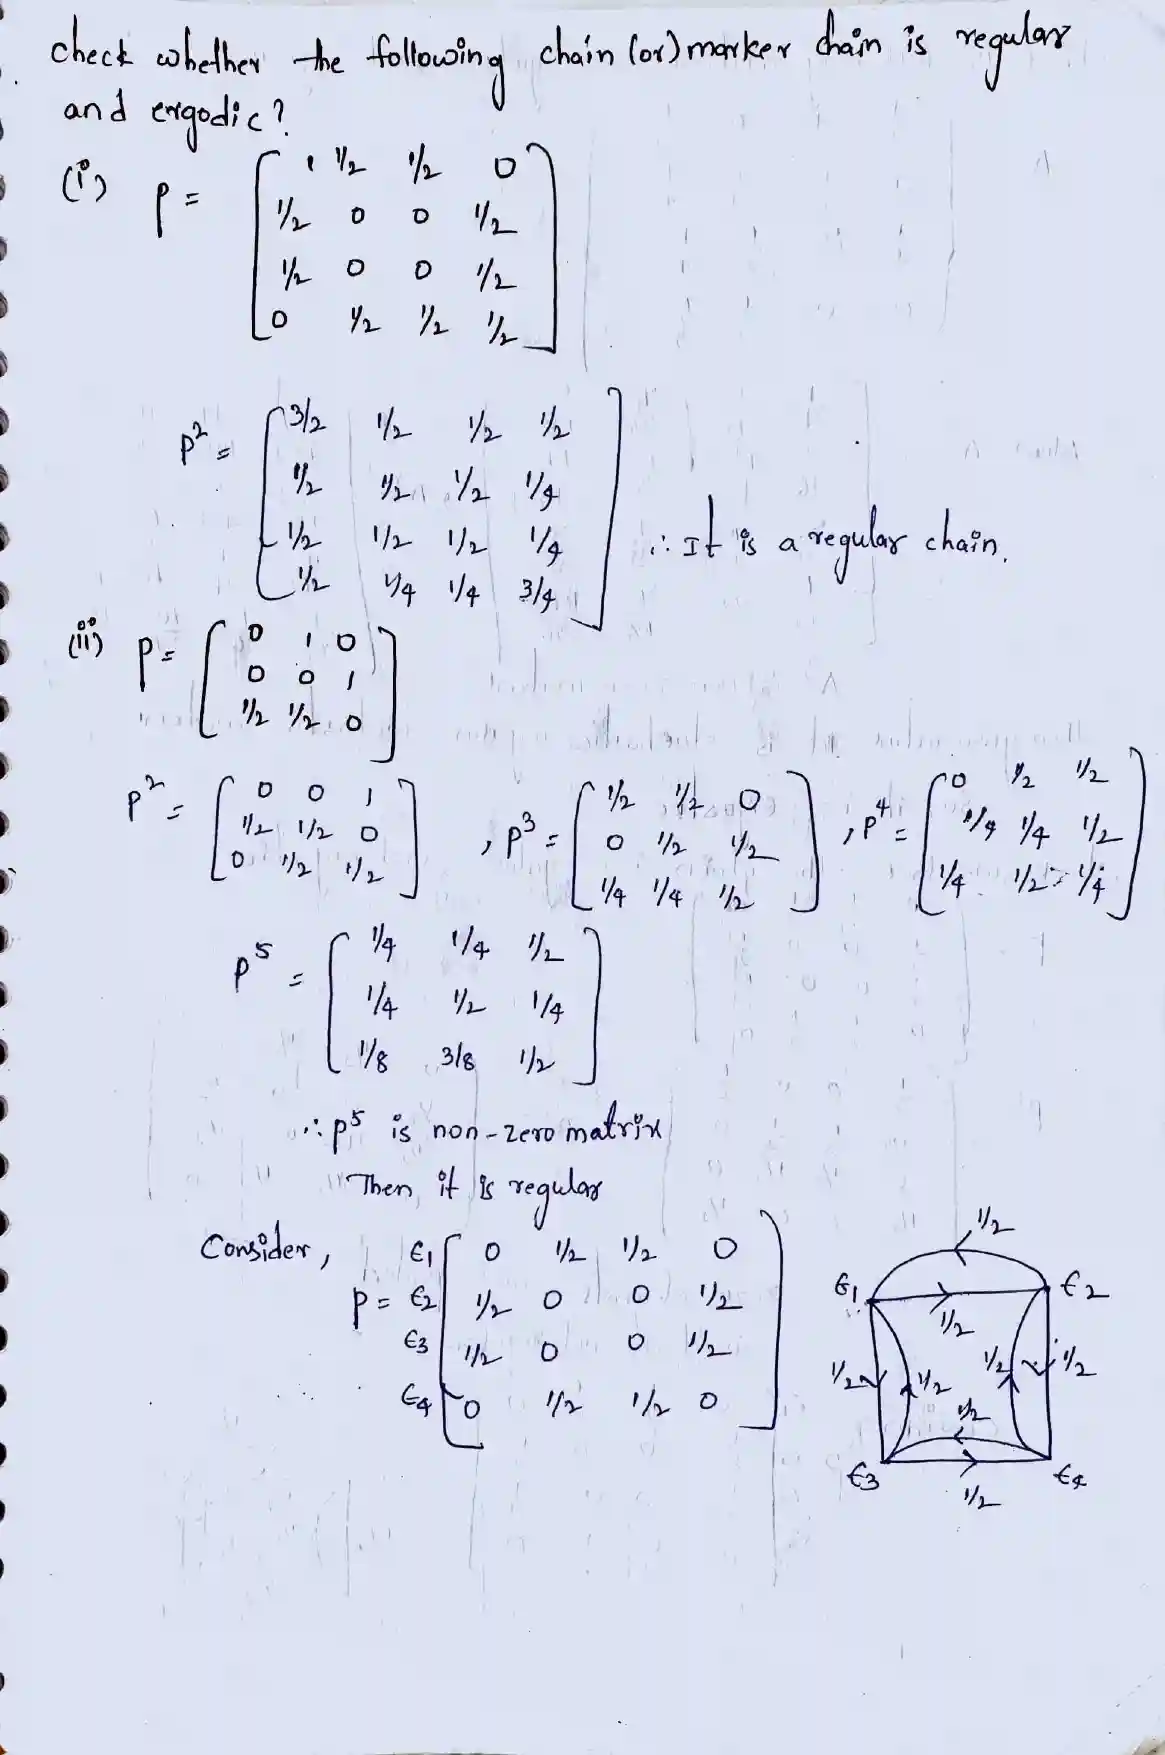 check whether the following chain (or) marker chain is regular
and ergodic?
(i) P = [ 1 1/2 1/2 0
1/2 0 0 1/2
1/2 0 0 1/2
0 1/2 1/2 1/2 ]
P² = [ 3/2 1/2 1/2 1/2
1/2 1/2 1/2 1/4
1/2 1/2 1/2 1/4
1/2 1/4 1/4 3/4 ]
∴ It is a regular chain.
(ii) P = [ 0 1 0
0 0 1
1/2 1/2 0 ]
P² = [ 0 0 1
1/2 1/2 0
0 1/2 1/2 ]
, P³ = [ 1/2 1/2 0
0 1/2 1/2
1/4 1/4 1/2 ]
, P⁴ = [ 0 1/2 1/2
1/4 1/4 1/2
1/4 1/2 1/4 ]
P⁵ = [ 1/4 1/4 1/2
1/4 1/2 1/4
1/8 3/8 1/2 ]
∴ P⁵ is non-zero matrix
Then it is regular
Consider,
P =
ϵ1 [ 0 1/2 1/2 0
ϵ2 1/2 0 0 1/2
ϵ3 1/2 0 0 1/2
ϵ4 0 1/2 1/2 0 ]
1/2
ϵ1 ϵ2
1/2
1/2 1/2 1/2 1/2
1/2
ϵ3 ϵ4
1/2